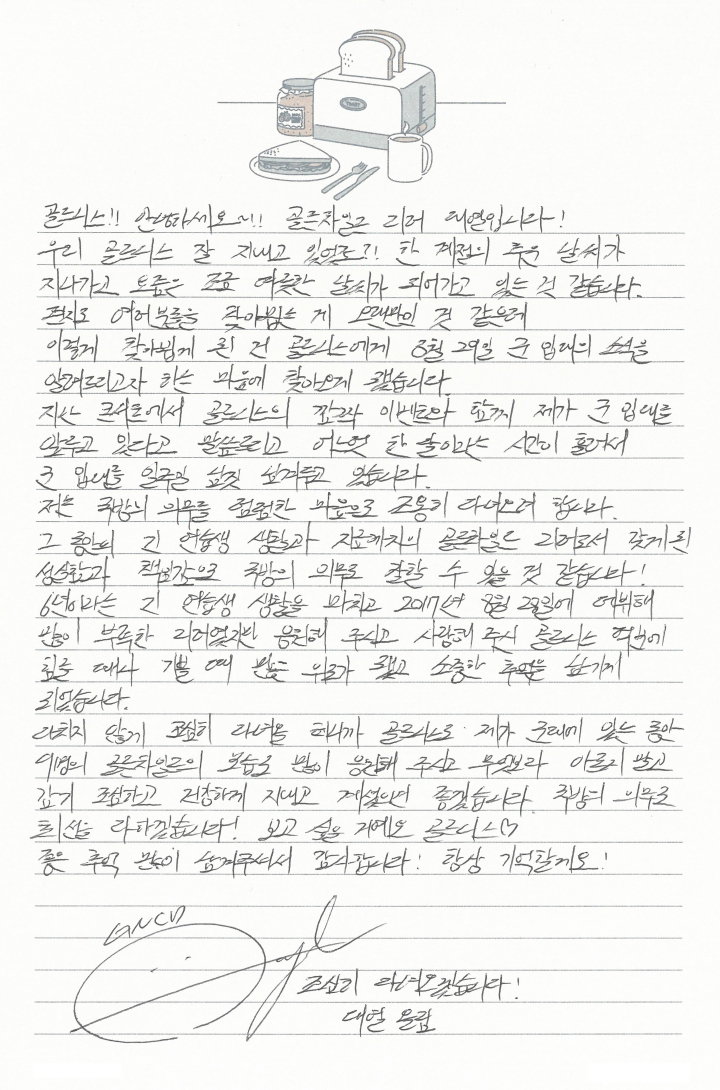 TOAST
골드니스!! 안녕하세요~!! 골든차일드 리더 대열입니다!
우리 골드니스 잘 지내고 있었죠?! 한 계절의 추운 날씨가
지나가고 요즘은 조금 따뜻한 날씨가 되어가고 있는 것 같습니다.
편지로 여러분들을 찾아뵙는 게 오랜만인 것 같은데
이렇게 찾아뵙게 된 건 골드니스에게 3월 29일 군 입대의 소식을
알려드리고자 하는 마음에 찾아오게 됐습니다.
지난 콘서트에서 골드니스의 깜짝 이벤트와 함께 제가 군 입대를
앞두고 있다고 말씀드리고 어느덧 한 달이라는 시간이 흘러서
군 입대를 일주일 남짓 남겨두고 있습니다.
저는 국방의 의무를 덤덤한 마음으로 조용히 다녀오려 합니다.
그 동안의 긴 연습생 생활과 지금까지의 골든차일드 리더로서 갖게된
성실함과 책임감으로 국방의 의무도 잘할 수 있을 것 같습니다!
6년이라는 긴 연습생 생활을 마치고 2017년 8월 28일에 데뷔해
많이 부족한 리더였지만 응원해 주시고 사랑해 주신 골드니스 덕분에
힘들 때나 기쁠 때 많은 위로가 됐고 소중한 추억을 남기게
되었습니다.
다치지 않게 조심히 다녀올 테니까 골드니스도 제가 군대에 있는 동안
9명의 골든차일드의 모습도 많이 응원해 주시고 무엇보다 아프지 말고
감기 조심하고 건강하게 지내고 계셨으면 좋겠습니다. 국방의 의무도
최선을 다하겠습니다! 보고 싶을 거예요 골드니스♡
좋은 추억 많이 남겨주셔서 감사합니다! 항상 기억할게요!
GNCD
조심히 다녀오겠습니다!
대열 올림